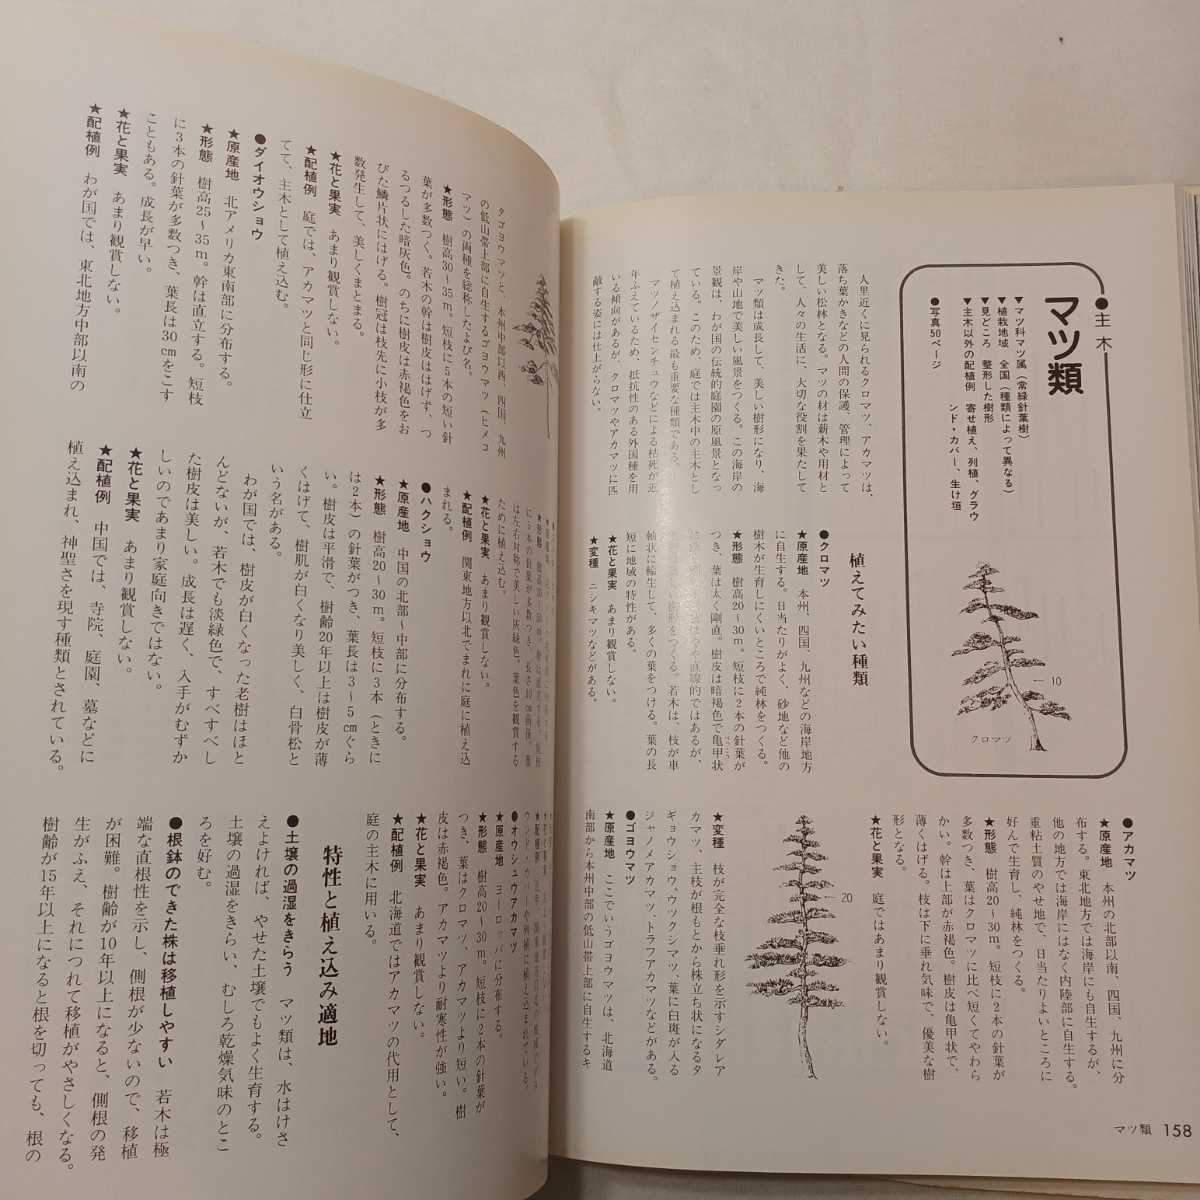 ●主木
マツ類
▼マツ科マツ属(常緑針葉樹)
▼植栽地域 全国(種類によって異なる)
▼見どころ 整形した樹形
▼主木以外の配植例 寄せ植え、列植、グラウ
ンド・カバー、生け垣
●写真50ページ
10
クロマツ
人里近くに見られるクロマツ、アカマツは、
落ち葉かきなどの人間の保護、管理によって
美しい松林となる。マツの材は薪木や用材と
して、人々の生活に、大切な役割を果たして
きた。
マツ類は成長して、美しい樹形になり、海
岸や山地で美しい風景をつくる。この海岸の
景観は、わが国の伝統的庭園の原風景となっ
ている。このため、庭では主木中の主木とし
て植え込まれる最も重要な種類である。
マツノザイセンチュウなどによる枯死が近
年ふえているため、抵抗性のある外国種を用
いる傾向があるが、クロマツやアカマツに匹
敵する姿には仕上がらない。
植えてみたい種類
●クロマツ
★原産地 本州、四国、九州などの海岸地方
に自生する。日当たりがよく、砂地など他の
樹木が生育しにくいところで純林をつくる。
★形態 樹高20〜30m。短枝に2本の針葉が
つき、葉は太く剛直。樹皮は暗褐色で亀甲状
をつくる。若木は、枝が車
軸状に輪生して、多くの葉をつける。葉の長
短に地域の特性がある。
★花と果実 あまり観賞しない。
★変種 ニシキマツなどがある。
●アカマツ
★原産地 本州の北部以南、四国、九州に分
布する。東北地方では海岸にも自生するが、
他の地方では海岸にはなく内陸部に自生する。
重粘土質のやせ地で、日当たりよいところに
好んで生育し、純林をつくる。
★形態 樹高20〜30m。短枝に2本の針葉が
多数つく。葉はクロマツに比べ短くてやわら
かい。幹は上部が赤褐色。樹皮は亀甲状で、
薄くはげる。枝は下に垂れ気味で、優美な樹
形となる。
★花と果実 庭ではあまり観賞しない。
20
★変種 枝が完全な枝垂れ形を示すシダレア
カマツ、主枝が根もとから株立ち状になるタ
ギョウショウ、ウツクシマツ、葉に白斑が入る
ジャノメアカマツ、トラフアカマツなどがある。
●ゴヨウマツ
★原産地 ここでいうゴヨウマツは、北海道
南部から本州中部の低山帯上部に自生するキ
マツ類 158
タゴヨウマツと、本州中部以西、四国、九州
の低山帯上部に自生するゴヨウマツ(ヒメコ
マツ)の両種を総称したよび名。
★形態 樹高30〜35m。短枝に5本の短い針
葉が多数つく。若木の幹は樹皮ははげず、つ
るつるした暗灰色。のちに樹皮は赤褐色をお
びた鱗片状にはげる。樹冠は枝先に小枝が多
数発生して、美しくまとまる。
★花と果実 あまり観賞しない。
★配植例 庭では、アカマツと同じ形に仕立
てて、主木として植え込む。
●ダイオウショウ
★原産地 北アメリカ東南部に分布する。
★形態 樹高25〜35m。幹は直立する。短枝
に3本の針葉が多数つき、葉長は30cmをこす
こともある。成長が早い。
★花と果実 あまり観賞しない。
★配植例 わが国では、東北地方中部以南の
は左右対称で美しい灰緑色。葉色を観賞する
ために植え込む。
★花と果実 あまり観賞しない。
★配植例 関東地方以北でまれに庭に植え込
まれる。
●ハクショウ
★原産地 中国の北部〜中部に分布する。
★形態 樹高20〜30m。短枝に3本(ときに
は2本)の針葉がつき、葉長は3〜5cmぐら
い。樹皮は平滑で、樹齢20年以上は樹皮が薄
くはげて、樹肌が白くなり美しく、白骨松と
いう名がある。
わが国では、樹皮が白くなった老樹はほと
んどないが、若木でも淡緑色で、すべすべし
た樹皮は美しい。成長は遅く、入手がむずか
しいのであまり家庭向きではない。
★花と果実 あまり観賞しない。
★配植例 中国では、寺院、庭園、墓などに
植え込まれ、神聖さを現す種類とされている。
ウンド・カバーや列植に植え込まれている。
●オウシュウアカマツ
★原産地 ヨーロッパに分布する。
★形態 樹高20〜30m。短枝に2本の針葉が
つき、葉はクロマツ、アカマツより短い。樹
皮は赤褐色。アカマツより耐寒性が強い。
★花と果実 あまり観賞しない。
★配植例 北海道ではアカマツの代用として、
庭の主木に用いる。
特性と植え込み適地
●土壌の過湿をきらう マツ類は、水はけさ
えよければ、やせた土壌でもよく生育する。
土壌の過湿をきらい、むしろ乾燥気味のとこ
ろを好む。
●根鉢のできた株は移植しやすい 若木は極
端な直根性を示し、側根が少ないので、移植
が困難。樹齢が10年以上になると、側根の発
生がふえ、それにつれて移植がやさしくなる。
樹齢が15年以上になると根を切っても、根の